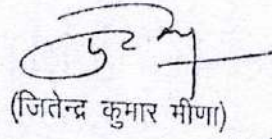 (जितेन्द्र कुमार मीणा)